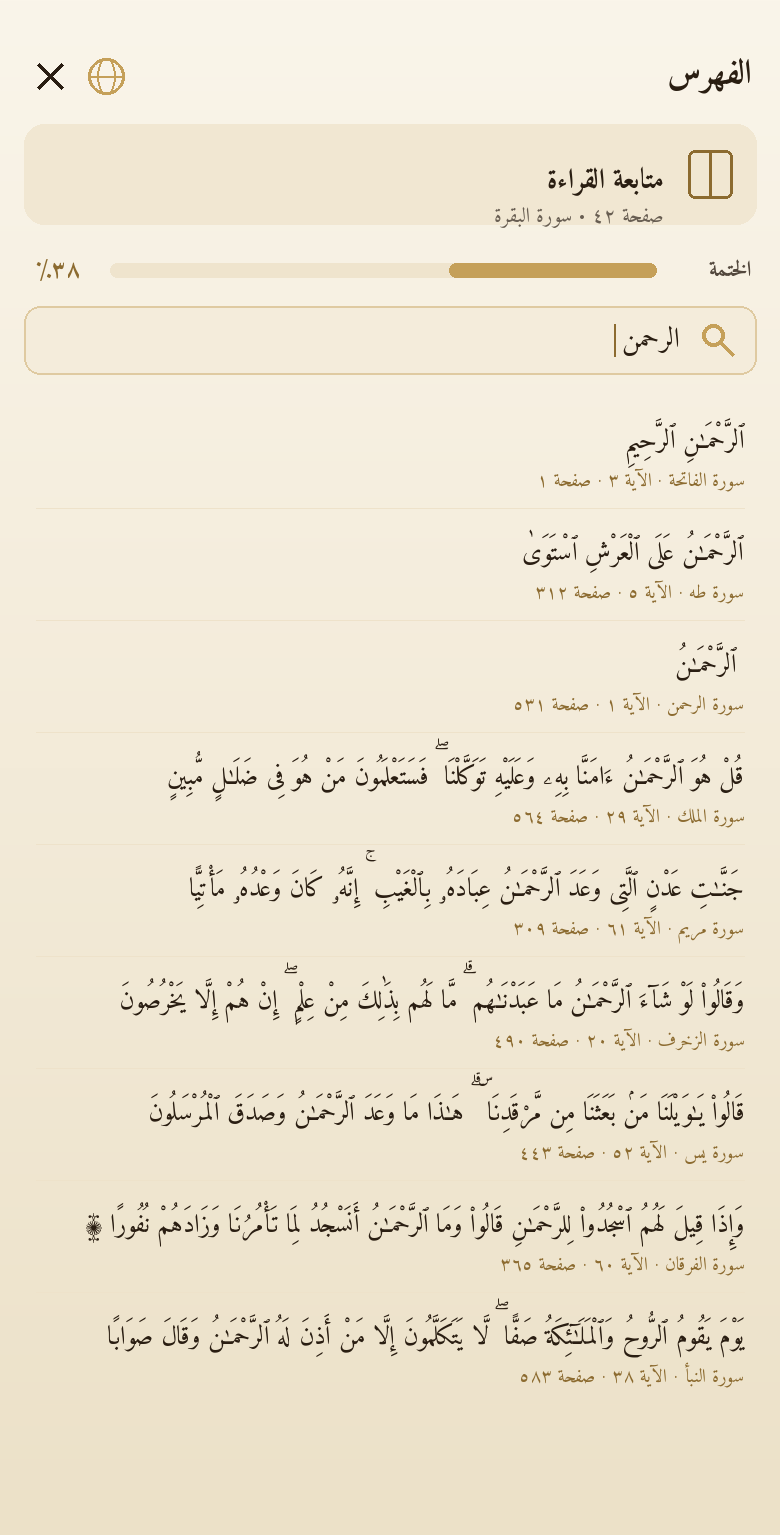 الفهرس
متابعة القراءة
صفحة ٤٢ • سورة البقرة
الختمة
٣٨٪
الرحمن
ٱلرَّحْمَـٰنِ ٱلرَّحِيمِ
سورة الفاتحة · الآية ٣ · صفحة ١
ٱلرَّحْمَـٰنُ عَلَى ٱلْعَرْشِ ٱسْتَوَىٰ
سورة طه · الآية ٥ · صفحة ٣١٢
ٱلرَّحْمَـٰنُ
سورة الرحمن · الآية ١ · صفحة ٥٣١
قُلْ هُوَ ٱلرَّحْمَـٰنُ ءَامَنَّا بِهِۦ وَعَلَيْهِ تَوَكَّلْنَا ۖ فَسَتَعْلَمُونَ مَنْ هُوَ فِى ضَلَـٰلٍ مُّبِينٍ
سورة الملك · الآية ٢٩ · صفحة ٥٦٤
جَنَّـٰتِ عَدْنٍ ٱلَّتِى وَعَدَ ٱلرَّحْمَـٰنُ عِبَادَهُۥ بِٱلْغَيْبِ ۚ إِنَّهُۥ كَانَ وَعْدُهُۥ مَأْتِيًّا
سورة مريم · الآية ٦١ · صفحة ٣٠٩
وَقَالُوا۟ لَوْ شَآءَ ٱلرَّحْمَـٰنُ مَا عَبَدْنَـٰهُم ۗ مَّا لَهُم بِذَٰلِكَ مِنْ عِلْمٍ ۖ إِنْ هُمْ إِلَّا يَخْرُصُونَ
سورة الزخرف · الآية ٢٠ · صفحة ٤٩٠
قَالُوا۟ يَـٰوَيْلَنَا مَنۢ بَعَثَنَا مِن مَّرْقَدِنَا ۜ ۗ هَـٰذَا مَا وَعَدَ ٱلرَّحْمَـٰنُ وَصَدَقَ ٱلْمُرْسَلُونَ
سورة يس · الآية ٥٢ · صفحة ٤٤٣
وَإِذَا قِيلَ لَهُمُ ٱسْجُدُوا۟ لِلرَّحْمَـٰنِ قَالُوا۟ وَمَا ٱلرَّحْمَـٰنُ أَنَسْجُدُ لِمَا تَأْمُرُنَا وَزَادَهُمْ نُفُورًا ۩
سورة الفرقان · الآية ٦٠ · صفحة ٣٦٥
يَوْمَ يَقُومُ ٱلرُّوحُ وَٱلْمَلَـٰٓئِكَةُ صَفًّا ۖ لَّا يَتَكَلَّمُونَ إِلَّا مَنْ أَذِنَ لَهُ ٱلرَّحْمَـٰنُ وَقَالَ صَوَابًا
سورة النبأ · الآية ٣٨ · صفحة ٥٨٣